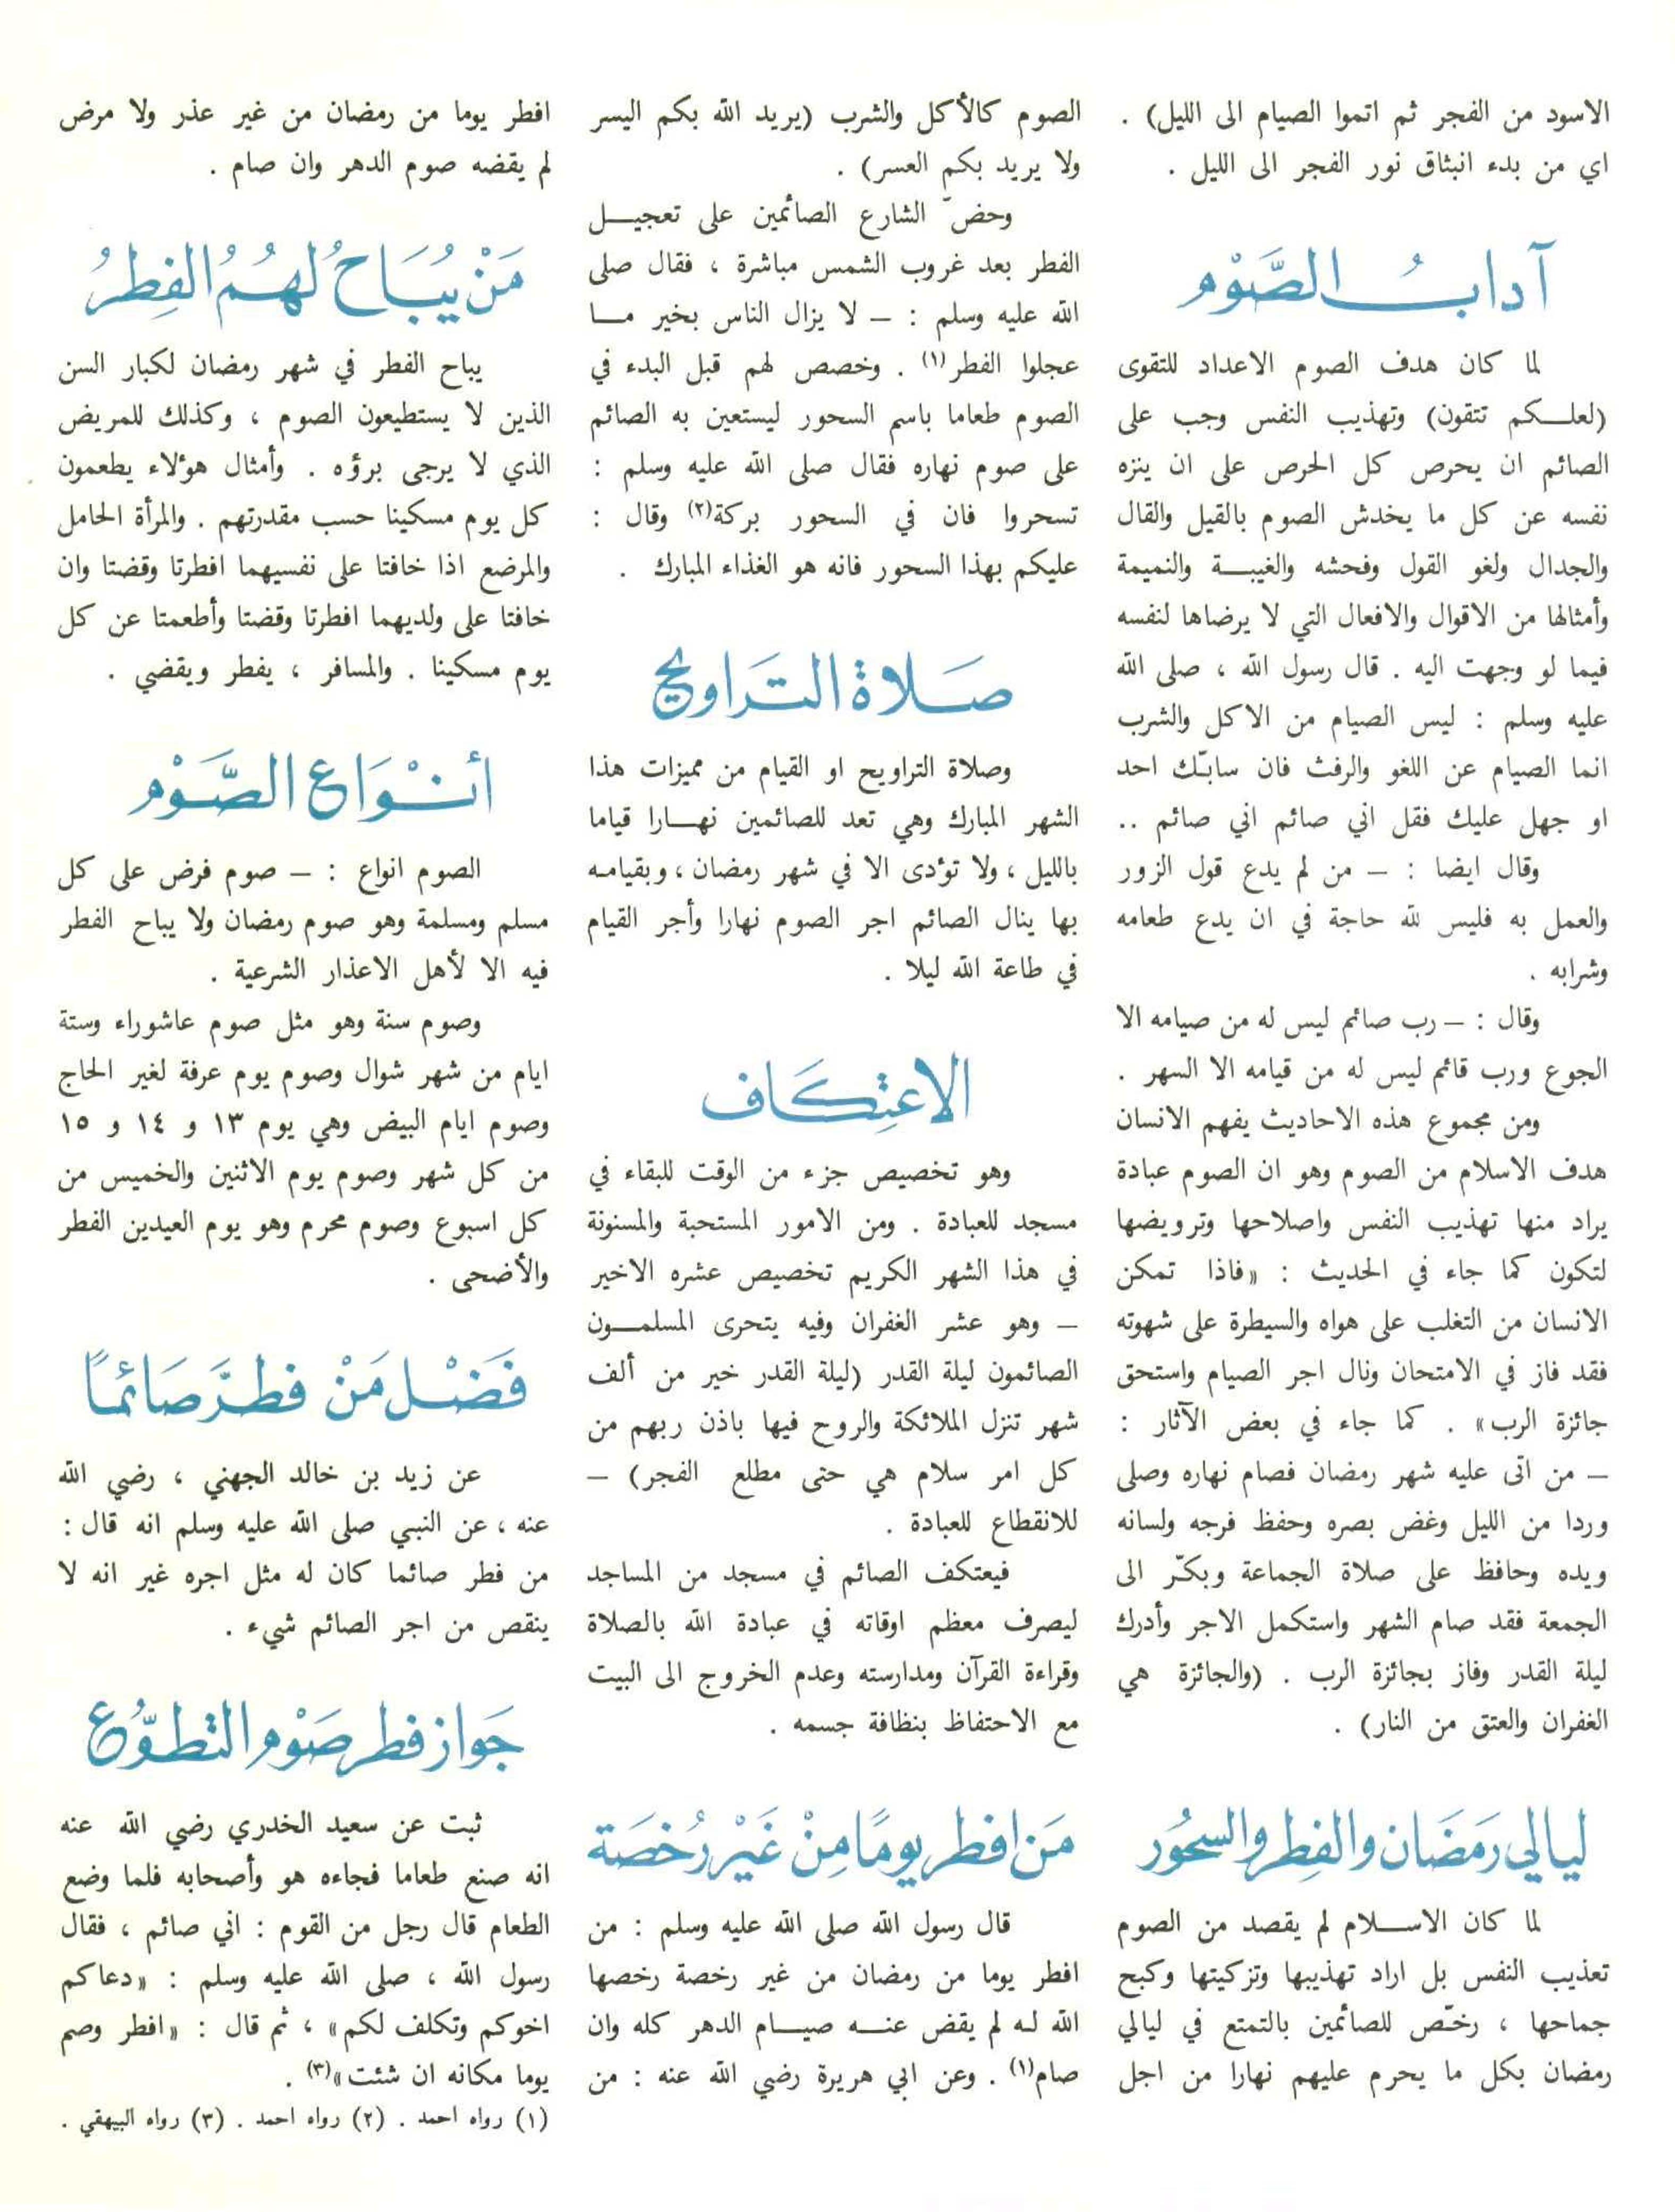 الاسود من الفجر ثم اتموا الصيام الى الليل) .
اي من بدء انبثاق نور الفجر الى الليل .
آدابُ الصَّوْم
لما كان هدف الصوم الاعداد للتقوى
(لعلـكم تتقون) وتهذيب النفس وجب على
الصائم ان يحرص كل الحرص على ان ينزه
نفسه عن كل ما يخدش الصوم بالقيل والقال
والجدال ولغو القول وفحشه والغيبـة والنميمة
وأمثالها من الاقوال والافعال التي لا يرضاها لنفسه
فيما لو وجهت اليه . قال رسول الله ، صلى الله
عليه وسلم : ليس الصيام من الاكل والشرب
انما الصيام عن اللغو والرفث فان سابّك احد
او جهل عليك فقل اني صائم اني صائم ..
وقال ايضا : – من لم يدع قول الزور
والعمل به فليس لله حاجة في ان يدع طعامه
وشرابه .
وقال : – رب صائم ليس له من صيامه الا
الجوع ورب قائم ليس له من قيامه الا السهر .
ومن مجموع هذه الاحاديث يفهم الانسان
هدف الاسلام من الصوم وهو ان الصوم عبادة
يراد منها تهذيب النفس واصلاحها وترويضها
لتكون كما جاء في الحديث : «فاذا تمكن
الانسان من التغلب على هواه والسيطرة على شهوته
فقد فاز في الامتحان ونال اجر الصيام واستحق
جائزة الرب» . كما جاء في بعض الآثار :
– من اتى عليه شهر رمضان فصام نهاره وصلى
وردا من الليل وغض بصره وحفظ فرجه ولسانه
ويده وحافظ على صلاة الجماعة وبكّر الى
الجمعة فقد صام الشهر واستكمل الاجر وأدرك
ليلة القدر وفاز بجائزة الرب . (والجائزة هي
الغفران والعتق من النار) .
ليالي رمَضَان والفِطر والسحُور
لما كان الاسـلام لم يقصد من الصوم
تعذيب النفس بل اراد تهذيبها وتزكيتها وكبح
جماحها ، رخّص للصائمين بالتمتع في ليالي
رمضان بكل ما يحرم عليهم نهارا من اجل
الصوم كالأكل والشرب (يريد الله بكم اليسر
ولا يريد بكم العسر) .
وحضّ الشارع الصائمين على تعجيـل
الفطر بعد غروب الشمس مباشرة ، فقال صلى
الله عليه وسلم : – لا يزال الناس بخير مـا
عجلوا الفطر(١) . وخصص لهم قبل البدء في
الصوم طعاما باسم السحور ليستعين به الصائم
على صوم نهاره فقال صلى الله عليه وسلم :
تسحروا فان في السحور بركة(٢) وقال :
عليكم بهذا السحور فانه هو الغذاء المبارك .
صَلاة التَراويح
وصلاة التراويح او القيام من مميزات هذا
الشهر المبارك وهي تعد للصائمين نهـارا قياما
بالليل ، ولا تؤدى الا في شهر رمضان ، وبقيامه
بها ينال الصائم اجر الصوم نهارا وأجر القيام
في طاعة الله ليلا .
الاعتِكَاف
وهو تخصيص جزء من الوقت للبقاء في
مسجد للعبادة . ومن الامور المستحبة والمسنونة
في هذا الشهر الكريم تخصيص عشره الاخير
– وهو عشر الغفران وفيه يتحرى المسلمـون
الصائمون ليلة القدر (ليلة القدر خير من ألف
شهر تنزل الملائكة والروح فيها باذن ربهم من
كل امر سلام هي حتى مطلع الفجر) –
للانقطاع للعبادة .
فيعتكف الصائم في مسجد من المساجد
ليصرف معظم اوقاته في عبادة الله بالصلاة
وقراءة القرآن ومدارسته وعدم الخروج الى البيت
مع الاحتفاظ بنظافة جسمه .
مَن افطر يومًا مِنْ غَيْر رُخصَة
قال رسول الله صلى الله عليه وسلم : من
افطر يوما من رمضان من غير رخصة رخصها
الله لـه لم يقض عنـه صيـام الدهر كله وان
صام(١) . وعن ابي هريرة رضي الله عنه : من
افطر يوما من رمضان من غير عذر ولا مرض
لم يقضه صوم الدهر وان صام .
مَنْ يُبَاحُ لهُمُ الفِطرُ
يباح الفطر في شهر رمضان لكبار السن
الذين لا يستطيعون الصوم ، وكذلك للمريض
الذي لا يرجى برؤه . وأمثال هؤلاء يطعمون
كل يوم مسكينا حسب مقدرتهم . والمرأة الحامل
والمرضع اذا خافتا على نفسيهما افطرتا وقضتا وان
خافتا على ولديهما افطرتا وقضتا وأطعمتا عن كل
يوم مسكينا . والمسافر ، يفطر ويقضي .
أنْوَاع الصَّوْم
الصوم انواع : – صوم فرض على كل
مسلم ومسلمة وهو صوم رمضان ولا يباح الفطر
فيه الا لأهل الاعذار الشرعية .
وصوم سنة وهو مثل صوم عاشوراء وستة
ايام من شهر شوال وصوم يوم عرفة لغير الحاج
وصوم ايام البيض وهي يوم ١٣ و ١٤ و ١٥
من كل شهر وصوم يوم الاثنين والخميس من
كل اسبوع وصوم محرم وهو يوم العيدين الفطر
والأضحى .
فَضْل مَنْ فطَّرَ صَائمًا
عن زيد بن خالد الجهني ، رضي الله
عنه ، عن النبي صلى الله عليه وسلم انه قال :
من فطر صائما كان له مثل اجره غير انه لا
ينقص من اجر الصائم شيء .
جَواز فطر صَوْم التطوُّع
ثبت عن سعيد الخدري رضي الله عنه
انه صنع طعاما فجاءه هو وأصحابه فلما وضع
الطعام قال رجل من القوم : اني صائم ، فقال
رسول الله ، صلى الله عليه وسلم : «دعاكم
اخوكم وتكلف لكم» ، ثم قال : «افطر وصم
يوما مكانه ان شئت»(٣) .
(١) رواه احمد . (٢) رواه احمد . (٣) رواه البيهقي .